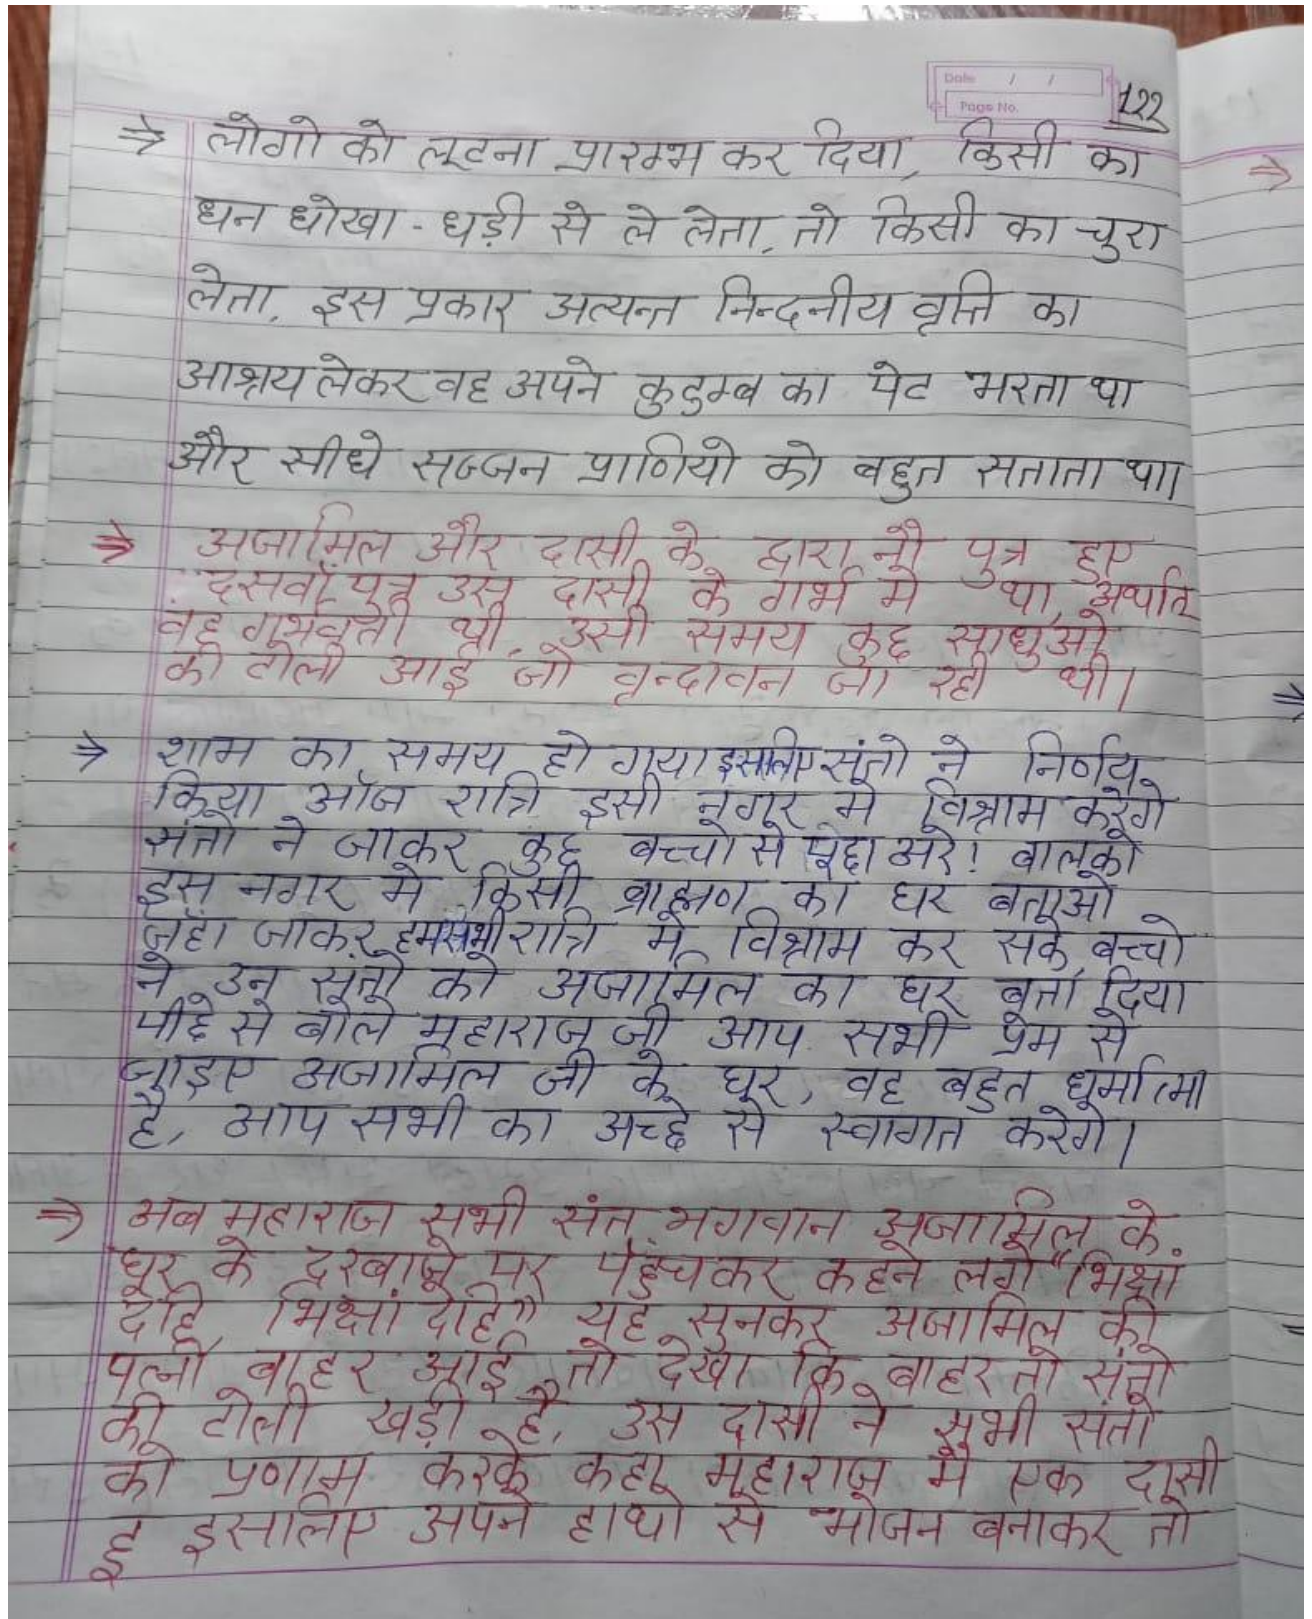 Date / /
Page No.
122
⇒ लोगो को लूटना प्रारम्भ कर दिया, किसी का
धन धोखा - धड़ी से ले लेता, तो किसी का चुरा
लेता, इस प्रकार अत्यन्त निन्दनीय वृत्ति का
आश्रय लेकर वह अपने कुटुम्ब का पेट भरता था
और सीधे सज्जन प्राणियो को बहुत सताता था।
⇒ अजामिल और दासी के द्वारा नौ पुत्र हुए
दसवाँ पुत्र उस दासी के गर्भ मे था, अर्थात
वह गर्भवती थी, उसी समय कुछ साधुओ
की टोली आई जो वृन्दावन जा रही थी।
⇒ शाम का समय हो गया इसलिए संतो ने निर्णय
किया आज रात्रि इसी नगर मे विश्राम करेगे
संतो ने जाकर कुछ बच्चो से पूछा अरे! बालको
इस नगर मे किसी ब्राह्मण का घर बताओ
जहाँ जाकर हम सभी रात्रि मे विश्राम कर सके, बच्चो
ने उन संतो को अजामिल का घर बता दिया
पीछे से बोले महाराज जी आप सभी प्रेम से
जाइए अजामिल जी के घर, वह बहुत धर्मात्मा
है, आप सभी का अच्छे से स्वागत करेगे।
⇒ अब महाराज सभी संत भगवान अजामिल के
घर के दरबाजे पर पहुंचकर कहने लगे "भिक्षां
देहि, भिक्षां देहि" यह सुनकर अजामिल की
पत्नी बाहर आई तो देखा कि बाहर तो संतो
की टोली खड़ी है, उस दासी ने सभी संतो
को प्रणाम करके कहा महाराज मै एक दासी
हूं इसलिए अपने हाथो से भोजन बनाकर तो